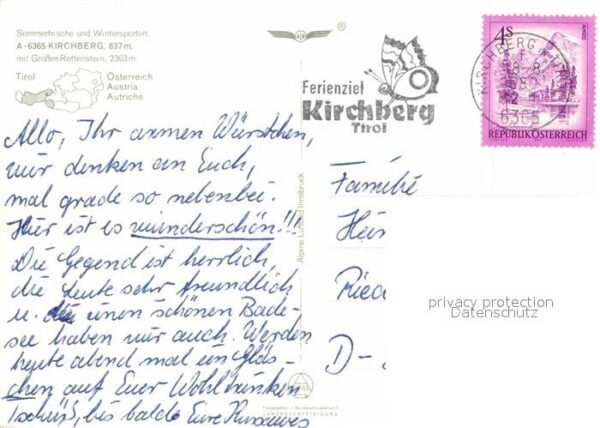 Sommerfrische und Wintersportort
A-6365 KIRCHBERG, 837 m,
mit Großen Rettenstein, 2363 m.
Tirol
Österreich
Austria
Autriche
Allo, Ihr armen Würstchen,
wir denken an Euch,
mal grade so nebenbei.
Hier ist es wunderschön!!!
Die Gegend ist herrlich,
die Leute sehr freundlich
u. einen schönen Bade-
see haben wir auch. Werden
heute abend mal ein Gläs-
chen auf Euer Wohl trinken
Tschüß, bis bald Eure
Alpine Luftbild Innsbruck
Ferienziel
Kirchberg
Tirol
KIRCHBERG
6365
4S
REPUBLIK ÖSTERREICH
Familie
Hein
Ried
D-
privacy protection
Datenschutz
LANDESVERTEIDIGUNG